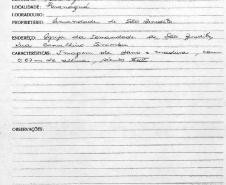 LOCALIDADE: Paranaguá
LOGRADOURO:
PROPRIETÁRIO: Irmandade de São Benedito
ENDEREÇO: Igreja da Irmandade de São Benedito,
Rua Conselheiro Sinimbu
CARACTERÍSTICAS: Imagem de dono e madura, com
0,67 m de altura, século
OBSERVAÇÕES: